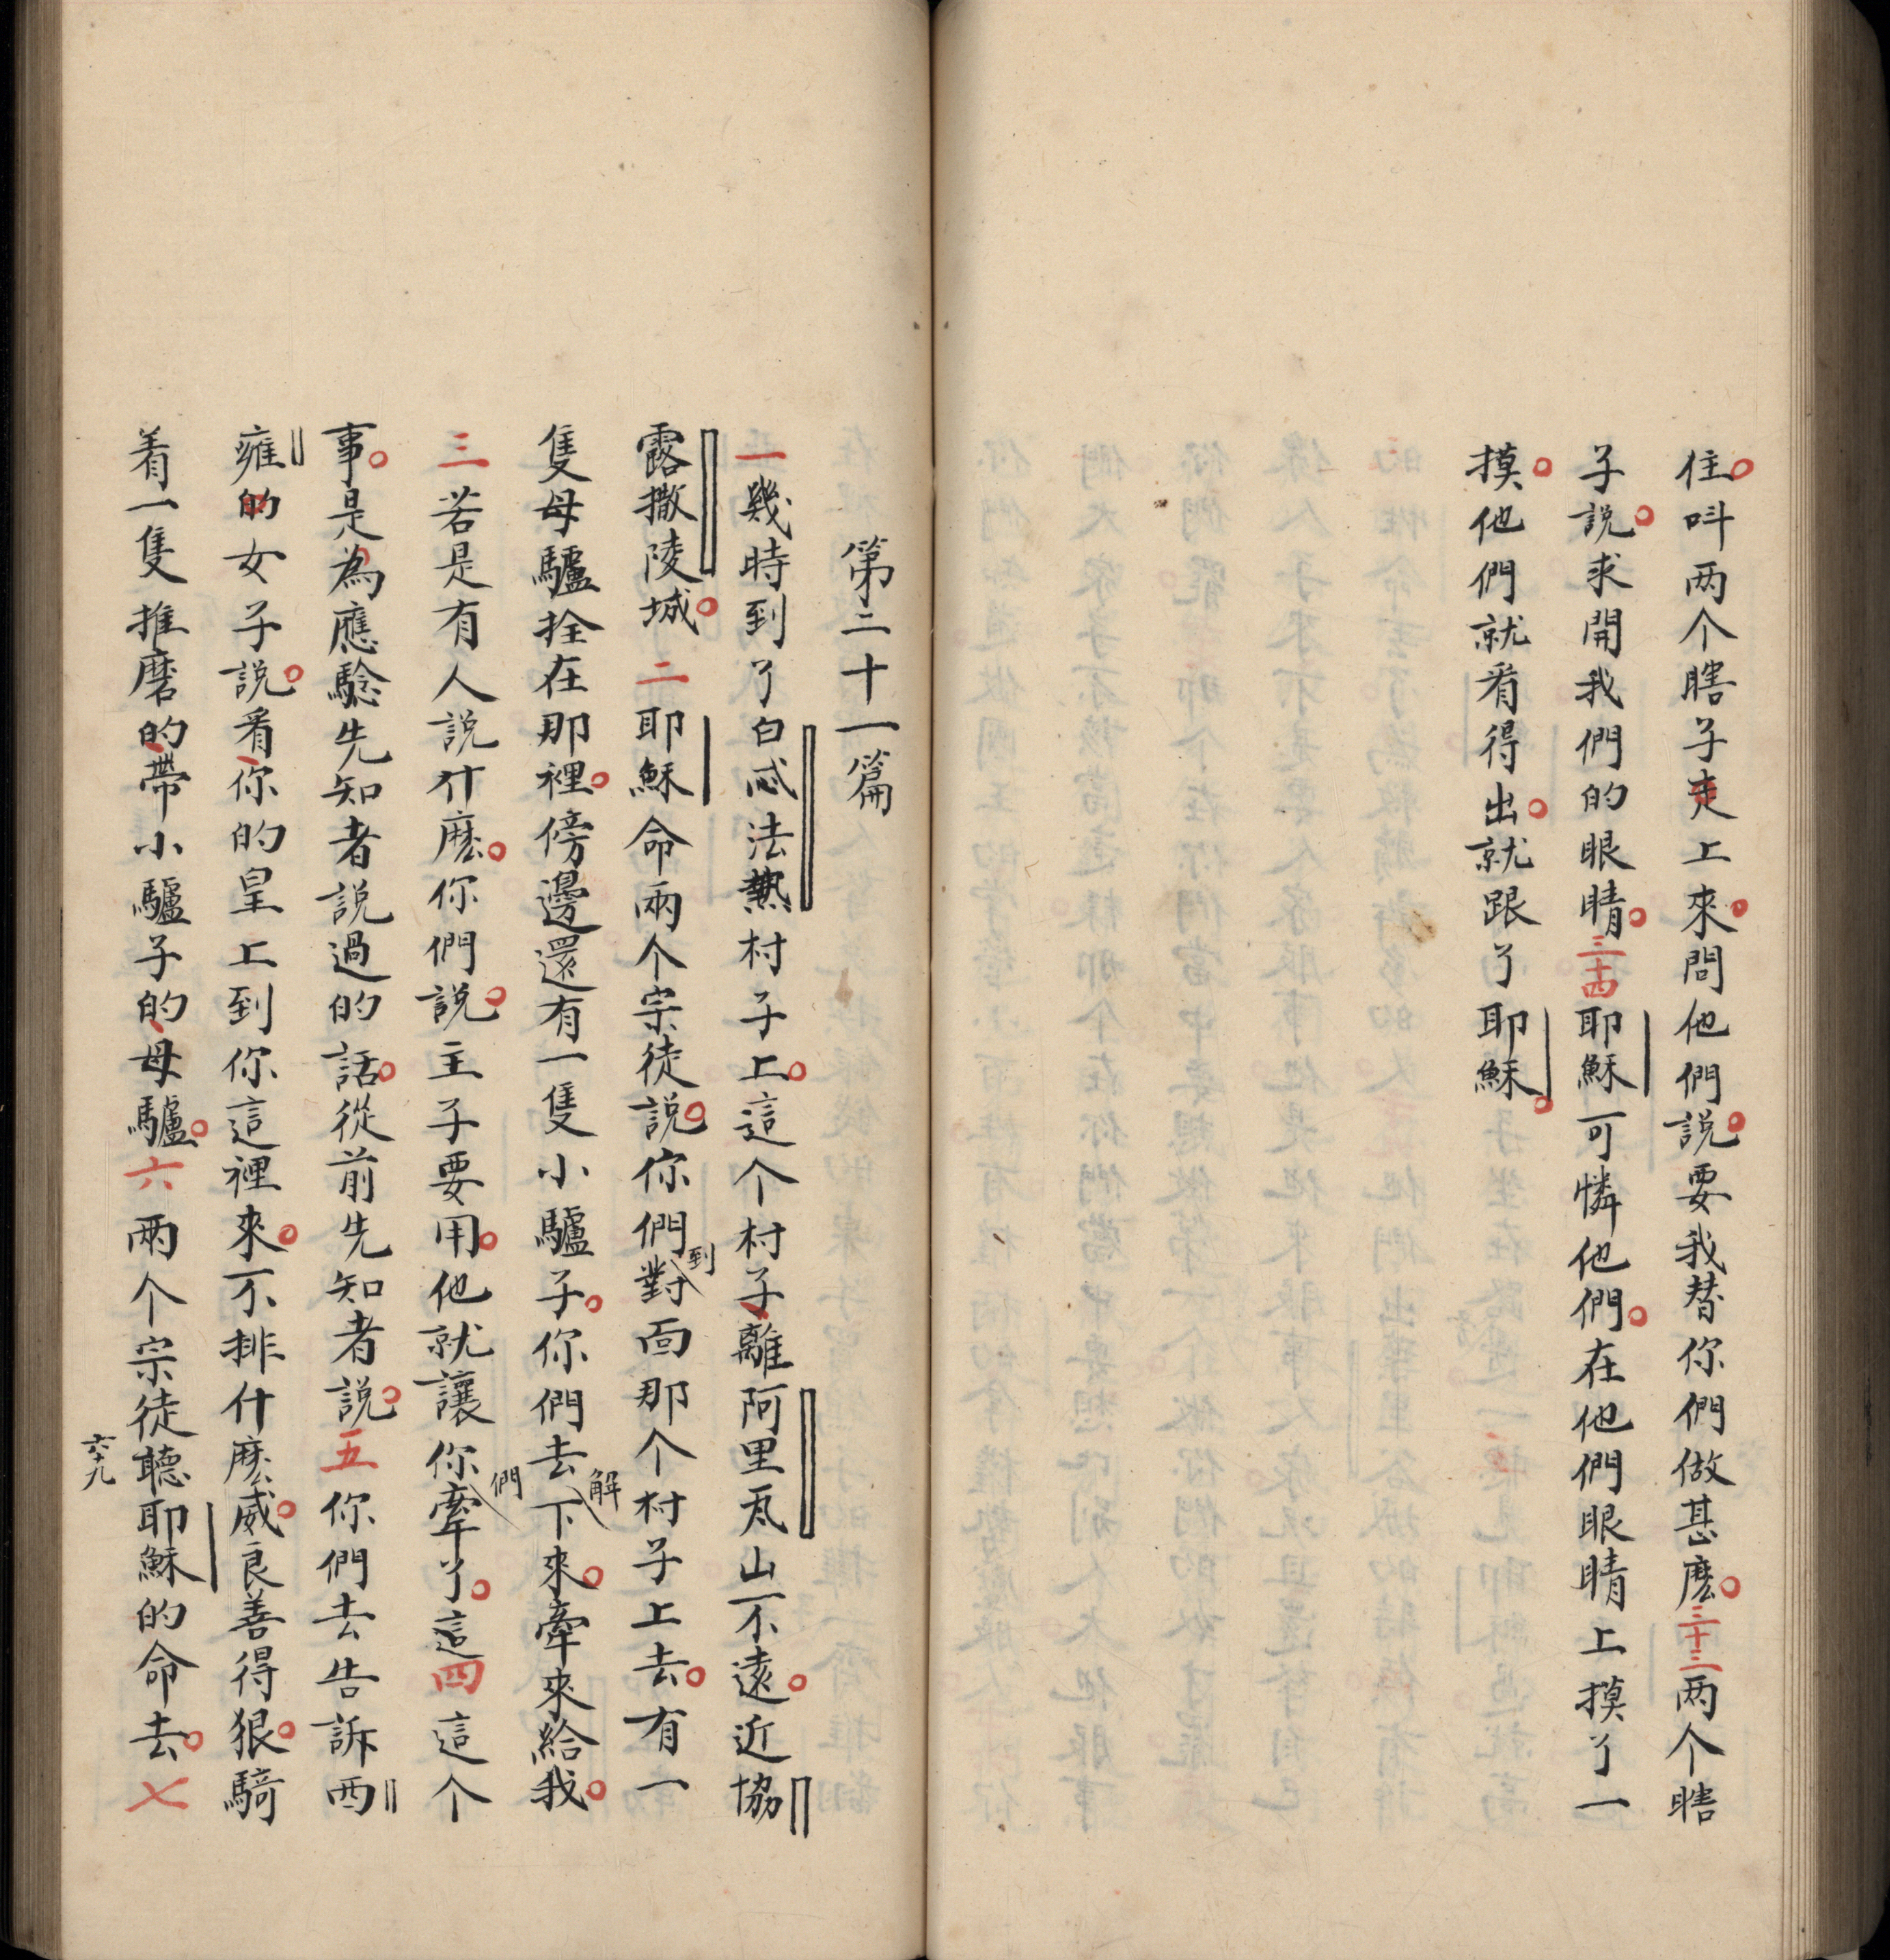 住叫两个瞎子走上來問他們説要我替你們做甚麽三十三两个瞎
子説求開我們的眼睛三十四耶穌可憐他們在他們眼睛上摸了一
摸他們就看得出就跟了耶穌
第二十一篇
一幾時到了白忒法熱村子上這个村子離阿里瓦山不遠近協
露撒陵城二耶穌命兩个宗徒説你們對到面那个村子上去有一
隻母驢拴在那裡傍邊還有一隻小驢子你們去解下來牽來給我
三若是有人説什麽你們説主子要用他就讓你們牽了這四這个
事是為應騐先知者説過的話從前先知者説五你們去告訴西
雍的女子説看你的皇上到你這裡來不排什麽威良善得狠騎
着一隻推磨的帶小驢子的母驢六兩个宗徒聽耶穌的命去七
六十九